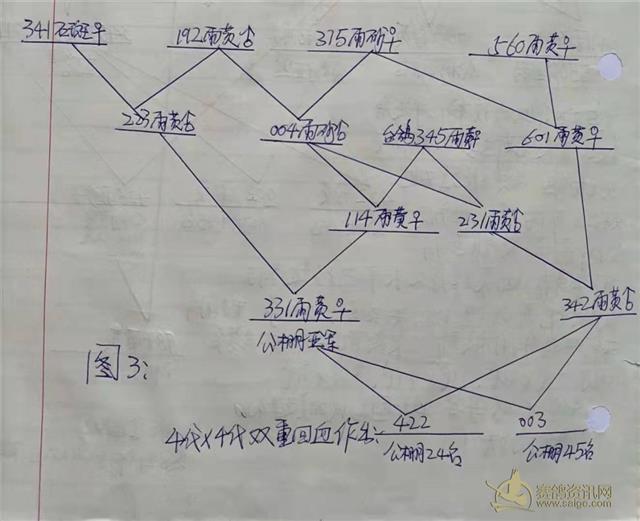 341石斑♀
192雨黄♂
375雨砂♀
560雨黄♀
283雨黄♂
004雨砂♂
白鸽345雨♀
601雨黄♀
114雨黄♀
231雨黄♂
331雨黄♀
公棚亚军
342雨黄♂
图3:
422
003
4代x4代双重回血作出:
公棚24名
公棚45名
赛鸽资讯网
www.saigo.com